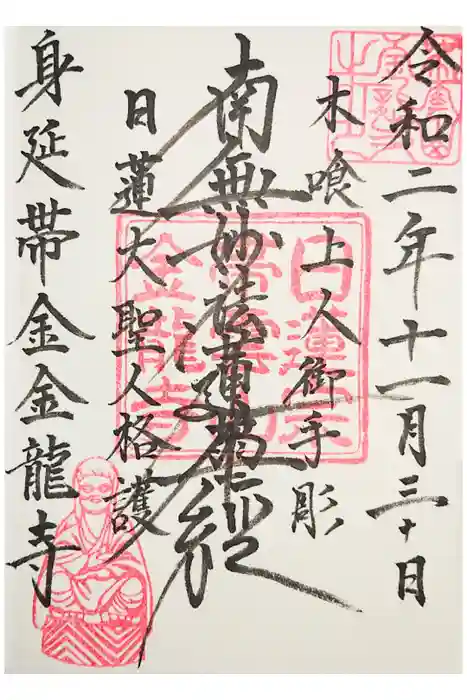 令和二年十一月三十日
木喰上人御手彫
南無妙法蓮華経
日蓮大聖人格護
身延帯金金龍寺
日蓮宗
金龍寺